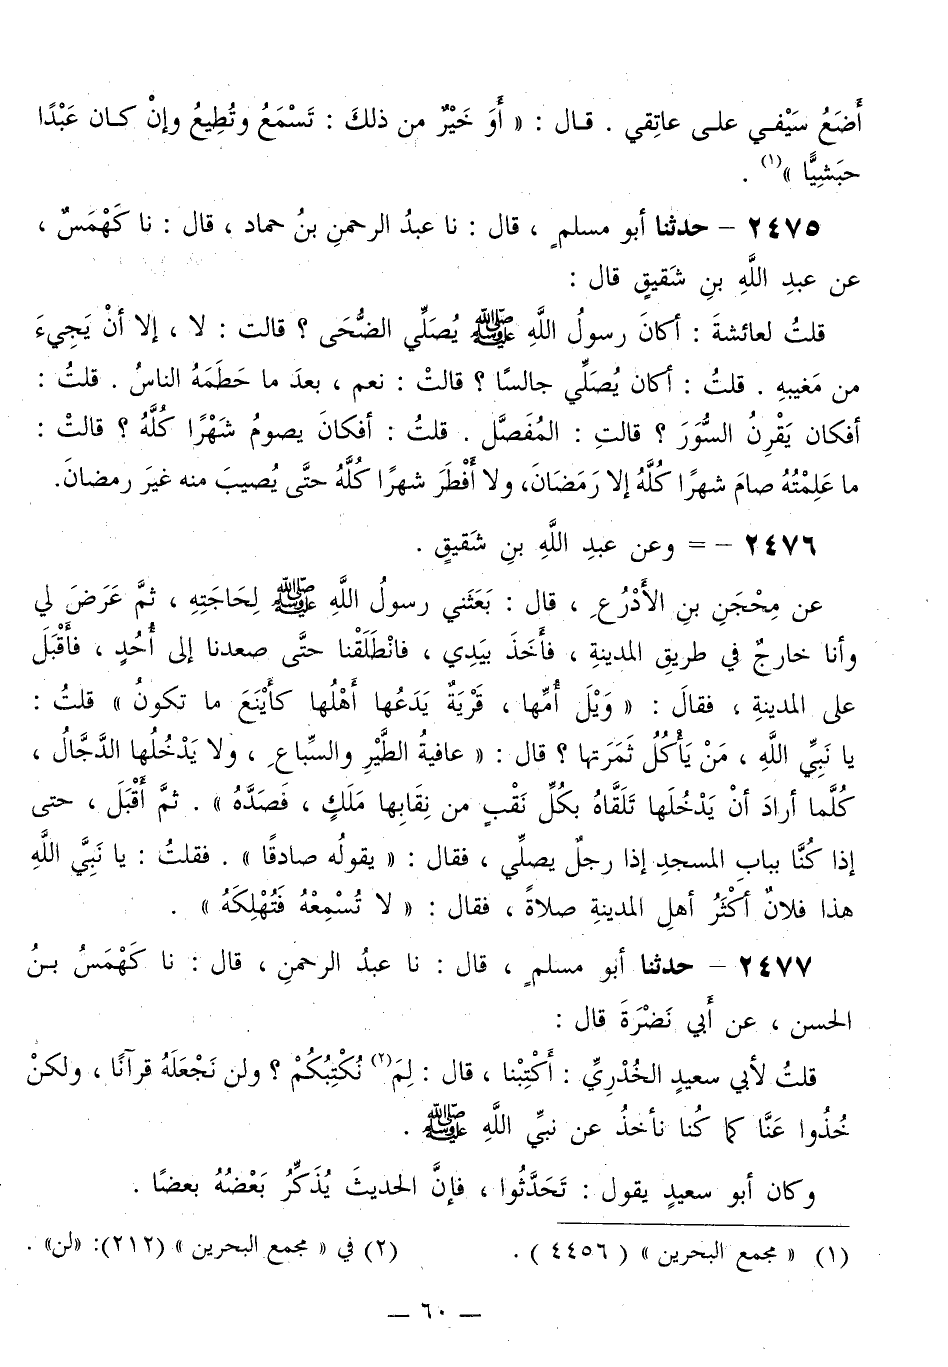 أَضَعُ سَيْفـي علـى عاتِقي . قـال : « أَوَ خَيْرٌ من ذلكَ : تَسْمَعُ وتُطِيعُ وإنْ كـان عَبْدًا
حبَشِيًّا »(١) .
٢٤٧٥ – حدثنا أبو مسلمٍ ، قال : نا عبدُ الرحمنِ بنُ حماد ، قال : نا كَهْمَسٌ ،
عن عبدِ اللَّهِ بنِ شَقيقٍ قال :
قلتُ لعائشةَ : أكانَ رسولُ اللَّهِ ﷺ يُصَلِّي الضُّحَى ؟ قالت : لا ، إلا أنْ يَجِيءَ
من مَغيبهِ . قلتُ : أكان يُصَلِّي جالسًا ؟ قالتْ : نعم ، بعدَ ما حَطَمَهُ الناسُ . قلتُ :
أفكان يَقْرِنُ السُّوَرَ ؟ قالتِ : المُفَصَّل . قلتُ : أفكانَ يصومُ شَهْرًا كُلَّهُ ؟ قالتْ :
ما عَلِمْتُهُ صامَ شهرًا كُلَّهُ إلا رَمَضَانَ، ولا أَفْطَرَ شهرًا كُلَّهُ حتَّى يُصيبَ منه غيرَ رمضانَ.
٢٤٧٦ – = وعن عبدِ اللَّهِ بنِ شَقيقٍ .
عن مِحْجَنِ بنِ الأَدْرُعِ ، قال : بَعَثَني رسولُ اللَّهِ ﷺ لِحَاجَتِهِ ، ثمَّ عَرَضَ لي
وأنا خارجٌ في طريقِ المدينةِ ، فأَخَذَ بيَدِي ، فانْطَلَقْنا حتَّى صعدنا إلى أُحُدٍ ، فأَقْبَلَ
على المدينةِ ، فقالَ : « وَيْلَ أُمِّها ، قَرْيَةٌ يَدَعُها أَهْلُها كأَيْنَعَ ما تكونُ » قلتُ :
يا نَبِيِّ اللَّهِ ، مَنْ يَأْكُلُ ثَمَرَتها ؟ قال : « عافيةُ الطَّيْرِ والسِّباعِ ، ولا يَدْخُلُها الدَّجَّالُ ،
كُلَّما أرادَ أنْ يَدْخُلَها تَلَقَّاهُ بكُلِّ نَقْبٍ من نِقَابِها مَلَكٍ ، فَصَدَّهُ » . ثمَّ أَقْبَلَ ، حتى
إذا كُنَّا ببابِ المسجدِ إذا رجلٌ يصلِّي ، فقال : « يقولُه صادقًا » . فقلتُ : يا نَبِيَّ اللَّهِ
هذا فلانٌ أكْثَرُ أهلِ المدينةِ صلاةً ، فقال : « لا تُسْمِعْهُ فَتُهْلِكَهُ » .
٢٤٧٧ – حدثنا أبو مسلمٍ ، قال : نا عبدُ الرحمنِ ، قال : نا كَهْمَسُ بـنُ
الحسن ، عن أَبي نَضْرَةَ قال :
قلتُ لأبي سعيدٍ الخُدْرِيِّ : أَكْتِبْنا ، قال : لِمَ(٢) نُكْتِبُكُمْ ؟ ولن نَجْعَلَهُ قرآنًا ، ولكنْ
خُذُوا عَنَّا كما كُنا نأخذُ عن نبيِّ اللَّهِ ﷺ .
وكان أبو سعيدٍ يقول : تَحَدَّثُوا ، فإنَّ الحديثَ يُذَكِّرُ بَعْضُهُ بعضًا .
(١) « مجمع البحرين » ( ٤٤٥٦ ) . (٢) في « مجمع البحرين » (٢١٢): «لن» .
— ٦٠ —